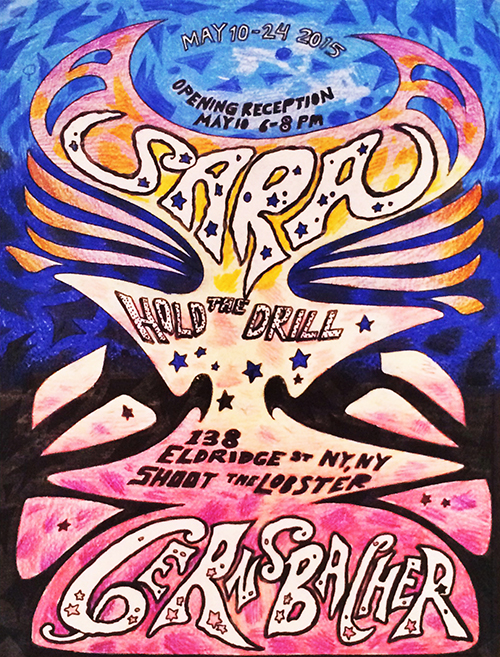 MAY 10-24 2015
OPENING RECEPTION
MAY 10 6-8 PM
SARA
HOLD THE DRILL
138
ELDRIDGE ST NY, NY
SHOOT THE LOBSTER
GERNSBACHER